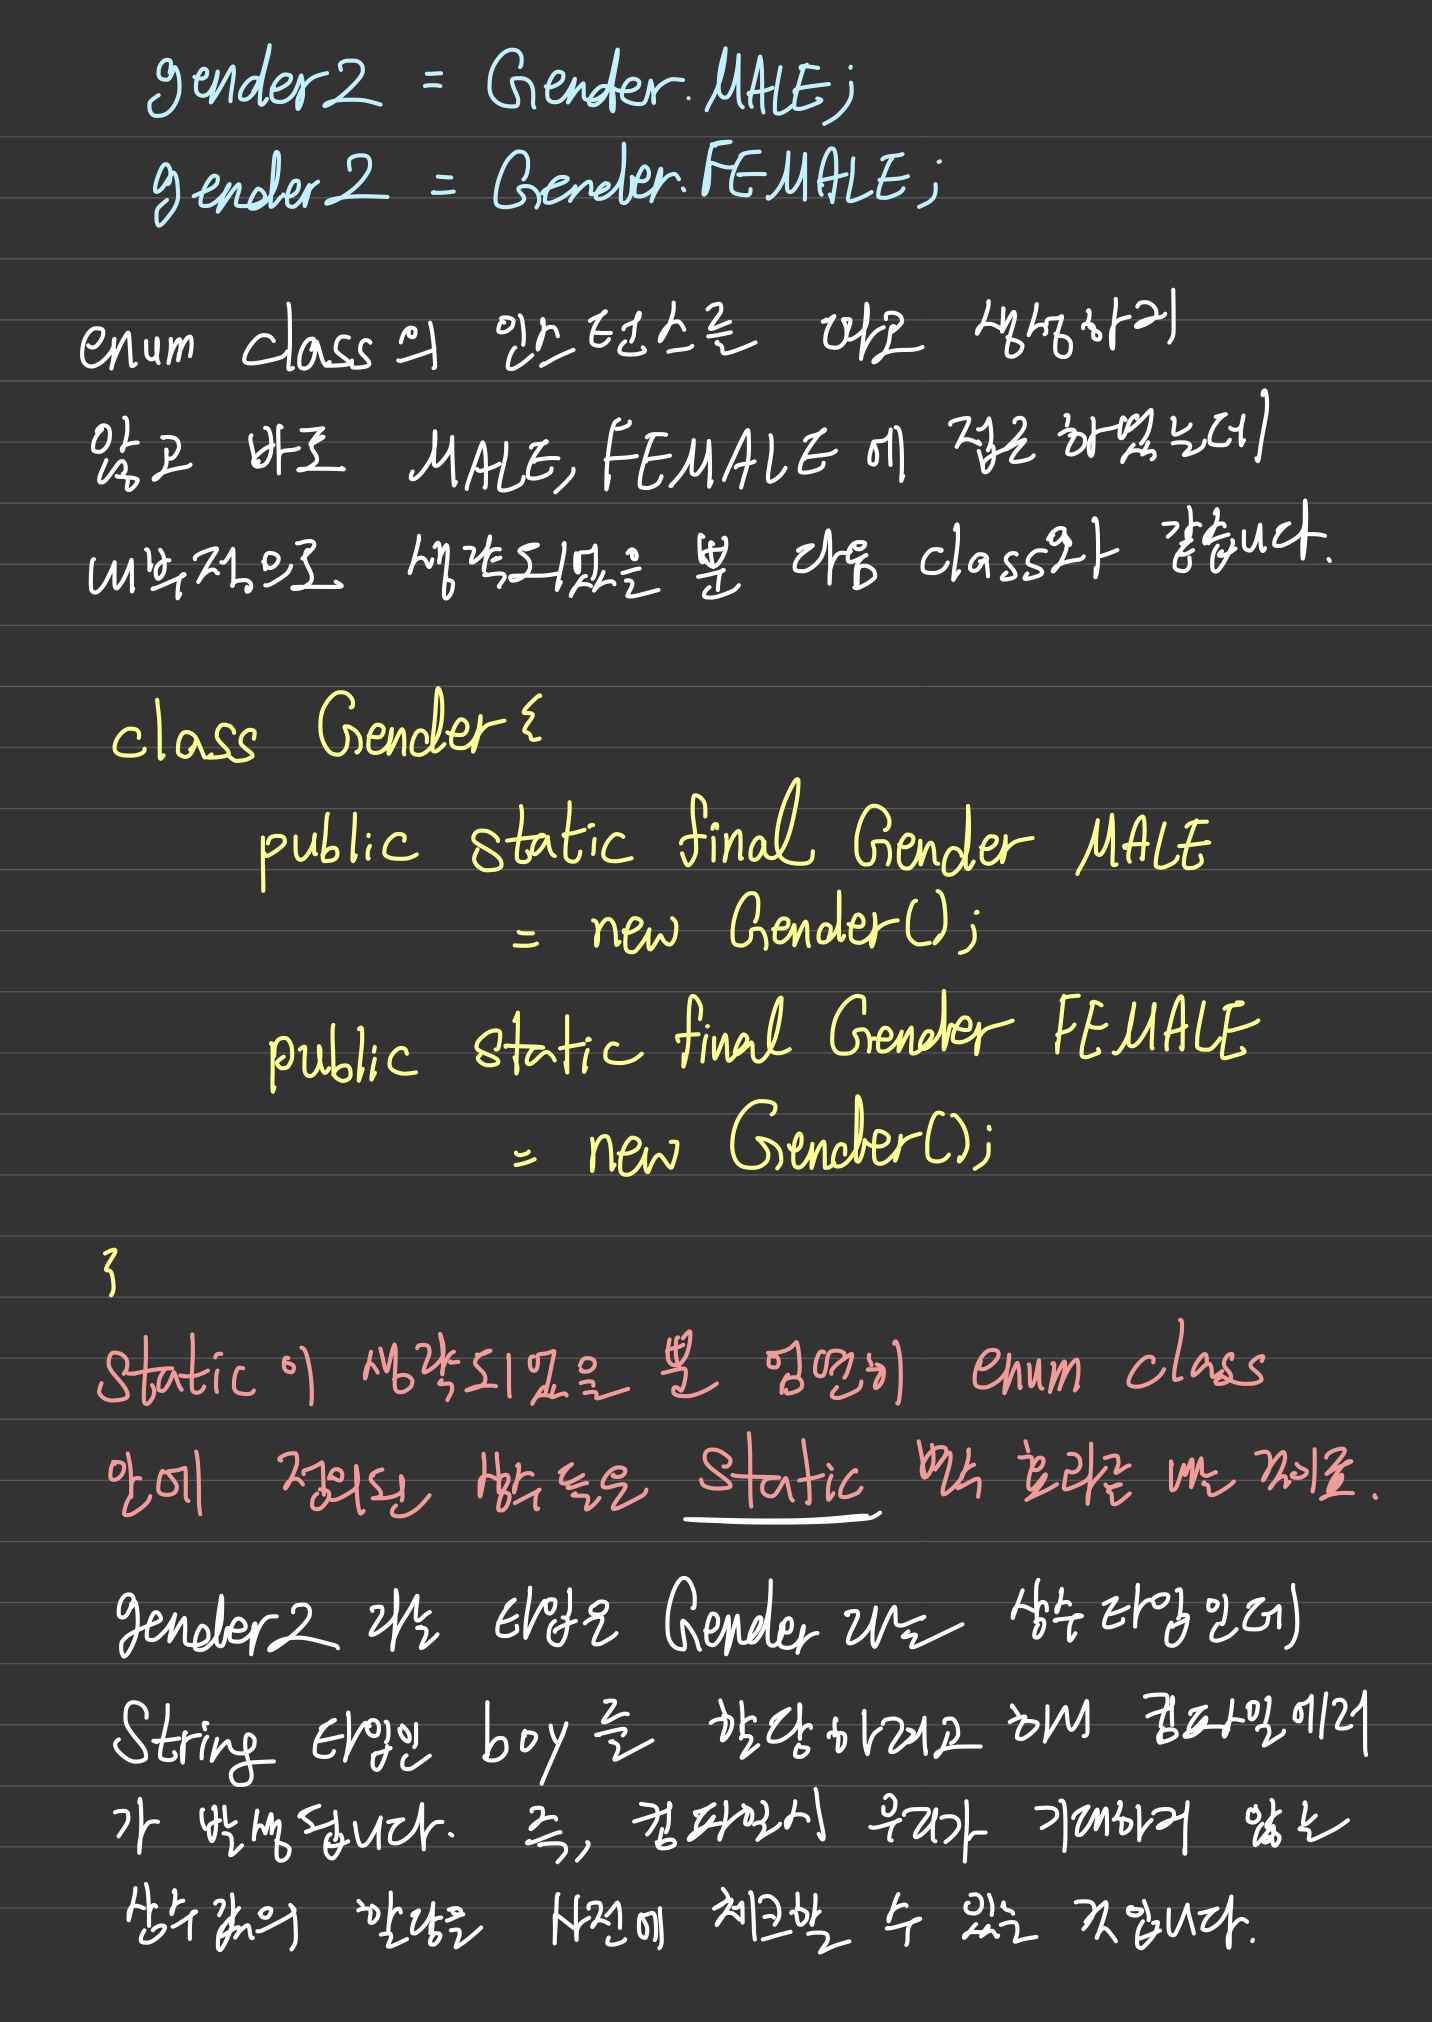 gender2 = Gender.MALE;
gender2 = Gender.FEMALE;
enum class의 인스턴스를 따로 생성하지
않고 바로 MALE, FEMALE에 접근하였는데
내부적으로 생략되었을 뿐 다음 class와 같습니다.
class Gender{
public static final Gender MALE
= new Gender();
public static final Gender FEMALE
= new Gender();
}
static이 생략되었을 뿐 엄연히 enum class
안에 정의된 상수들은 static 변수 효과를 내는 것이죠.
gender2 라는 타입은 Gender 라는 상수타입인데
String 타입인 boy를 할당하려고 해서 컴파일에러
가 발생됩니다. 즉, 컴파일시 우리가 기대하지 않는
상수값의 할당을 사전에 체크할 수 있는 것입니다.